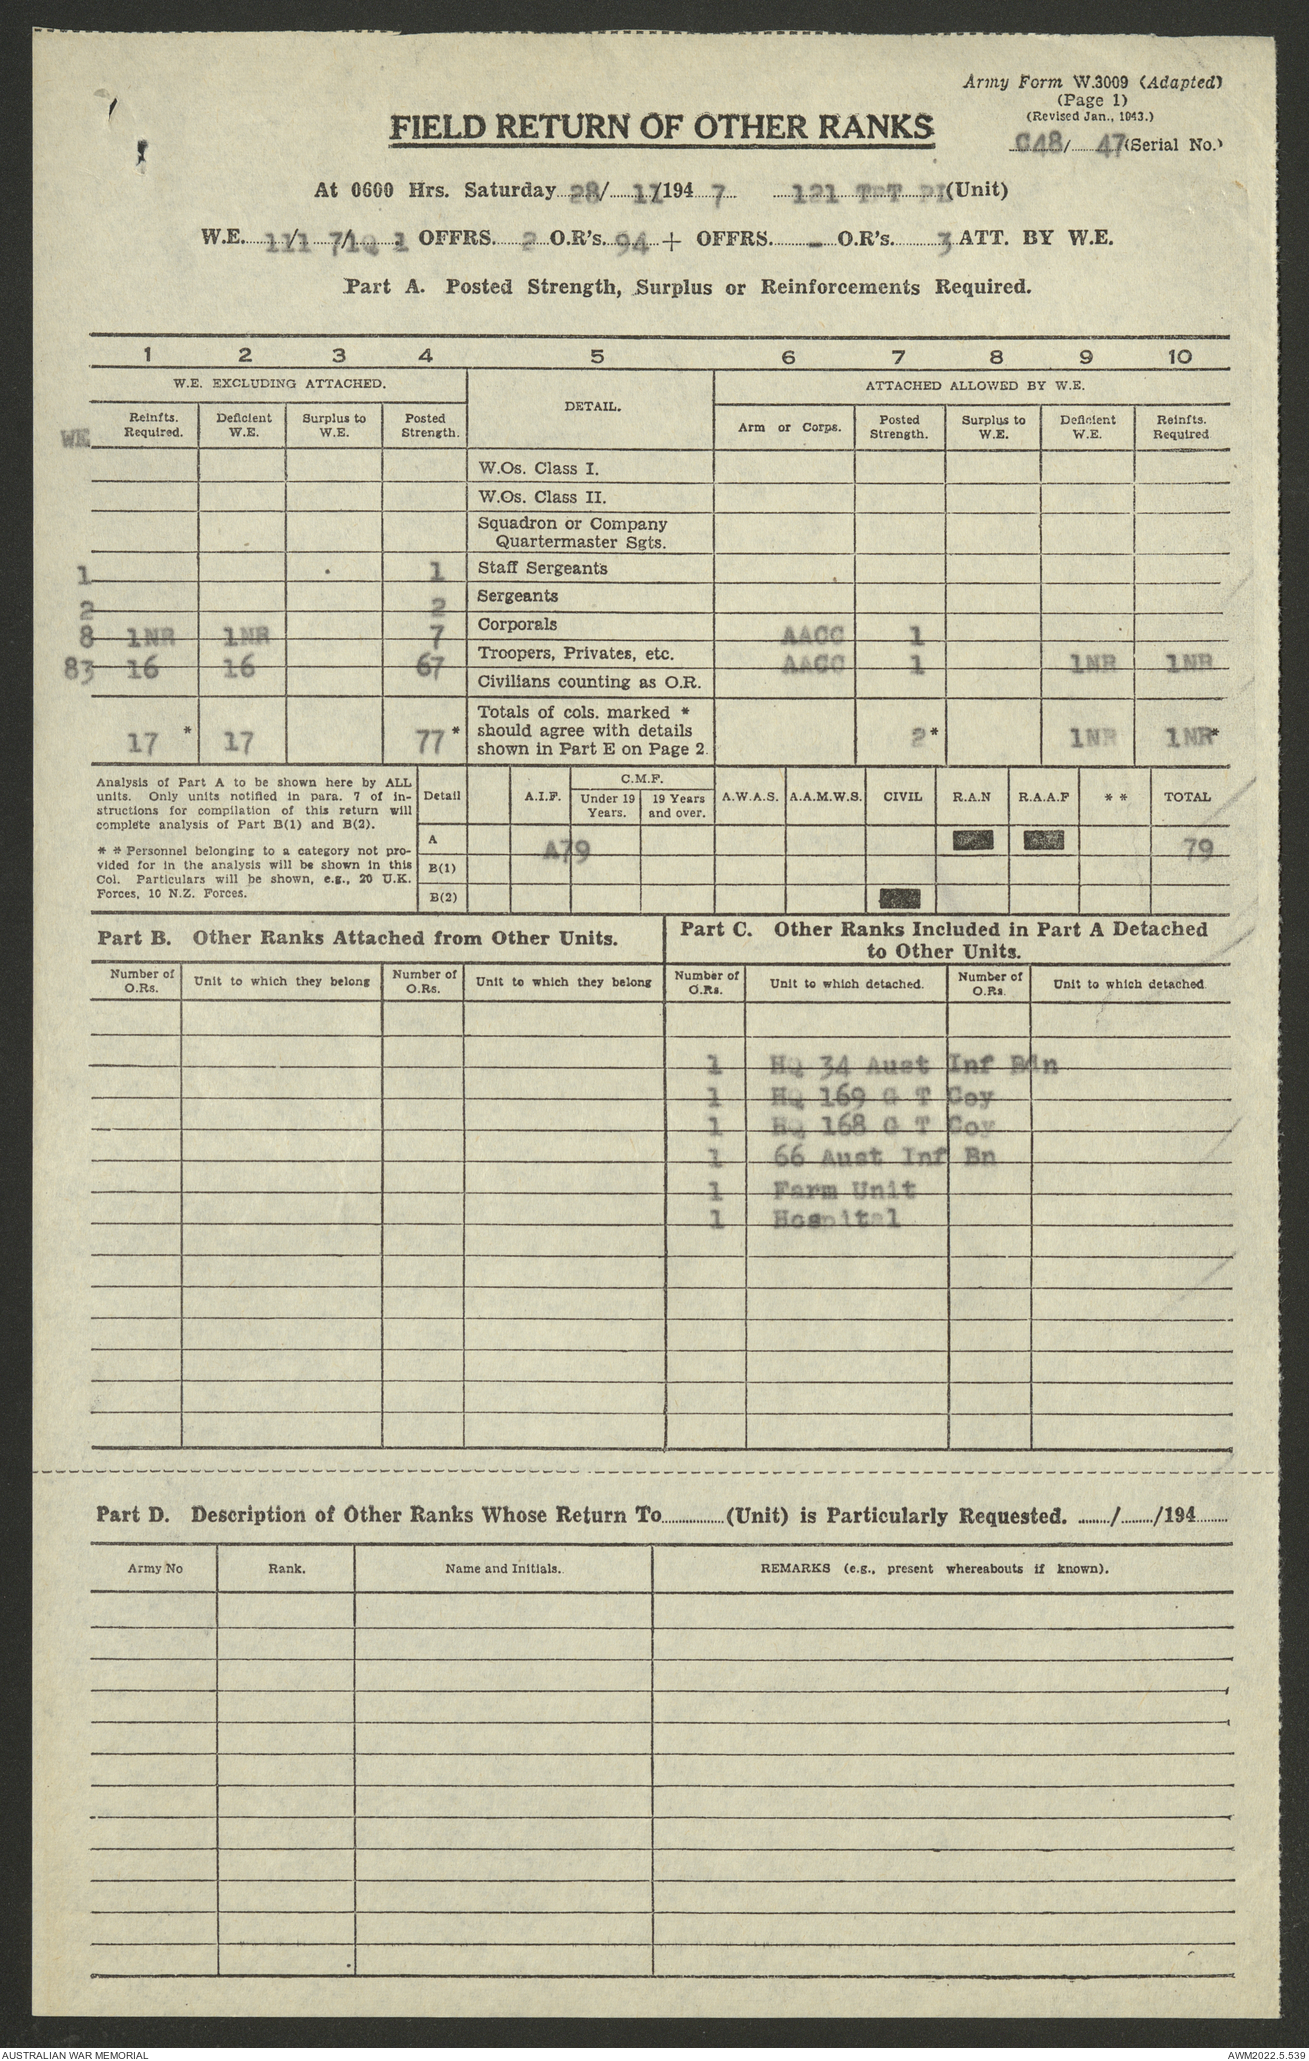 Army Form W.3009 (Adapted)
(Page 1)
(Revised Jan., 1943.)
FIELD RETURN OF OTHER RANKS
C48/ 47 (Serial No.)
At 0600 Hrs. Saturday 28/ 11/194 7 121 TPT PL (Unit)
W.E. 111/1 71Q 1 OFFRS. 2 O.R's. 94 + OFFRS. - O.R's. 3 ATT. BY W.E.
Part A. Posted Strength, Surplus or Reinforcements Required.
1 2 3 4 5 6 7 8 9 10
W.E. EXCLUDING ATTACHED. DETAIL. ATTACHED ALLOWED BY W.E.
WE Reinfts. Required. Deficient W.E. Surplus to W.E. Posted Strength. Arm or Corps. Posted Strength. Surplus to W.E. Deficient W.E. Reinfts. Required
W.Os. Class I.
W.Os. Class II.
Squadron or Company
Quartermaster Sgts.
1 1 Staff Sergeants
2 2 Sergeants
8 1NR 1NR 7 Corporals AACC 1
83 16 16 67 Troopers, Privates, etc. AACC 1 1NR 1NR
Civilians counting as O.R.
Totals of cols. marked *
should agree with details
shown in Part E on Page 2.
17 * 17 77 * 2 * 1NR 1NR*
Analysis of Part A to be shown here by ALL
units. Only units notified in para. 7 of in-
structions for compilation of this return will
complete analysis of Part B(1) and B(2).
* * Personnel belonging to a category not pro-
vided for in the analysis will be shown in this
Col. Particulars will be shown, e.g., 20 U.K.
Forces, 10 N.Z. Forces.
Detail A.I.F. C.M.F. Under 19 Years. 19 Years and over. A.W.A.S. A.A.M.W.S. CIVIL R.A.N R.A.A.F * * TOTAL
A A79 79
B(1)
B(2)
Part B. Other Ranks Attached from Other Units.
Number of O.Rs. Unit to which they belong Number of O.Rs. Unit to which they belong
Part C. Other Ranks Included in Part A Detached
to Other Units.
Number of O.Rs. Unit to which detached. Number of O.Rs. Unit to which detached
1 HQ 34 Aust Inf Bdn
1 HQ 169 G T Coy
1 HQ 168 G T Coy
1 66 Aust Inf Bn
1 Farm Unit
1 Hospital
Part D. Description of Other Ranks Whose Return To (Unit) is Particularly Requested. / /194
Army No Rank. Name and Initials. REMARKS (e.g., present whereabouts if known).
AUSTRALIAN WAR MEMORIAL AWM2022.5.539